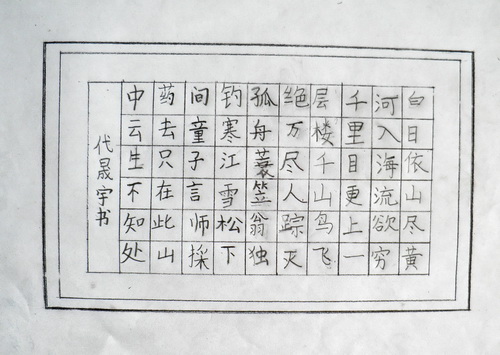 白日依山尽黄
河入海流欲穷
千里目更上一
层楼千山鸟飞
绝万尽人踪灭
孤舟蓑笠翁独
钓寒江雪松下
间童子言师採
药去只在此山
中云生不知处
代晟宇书